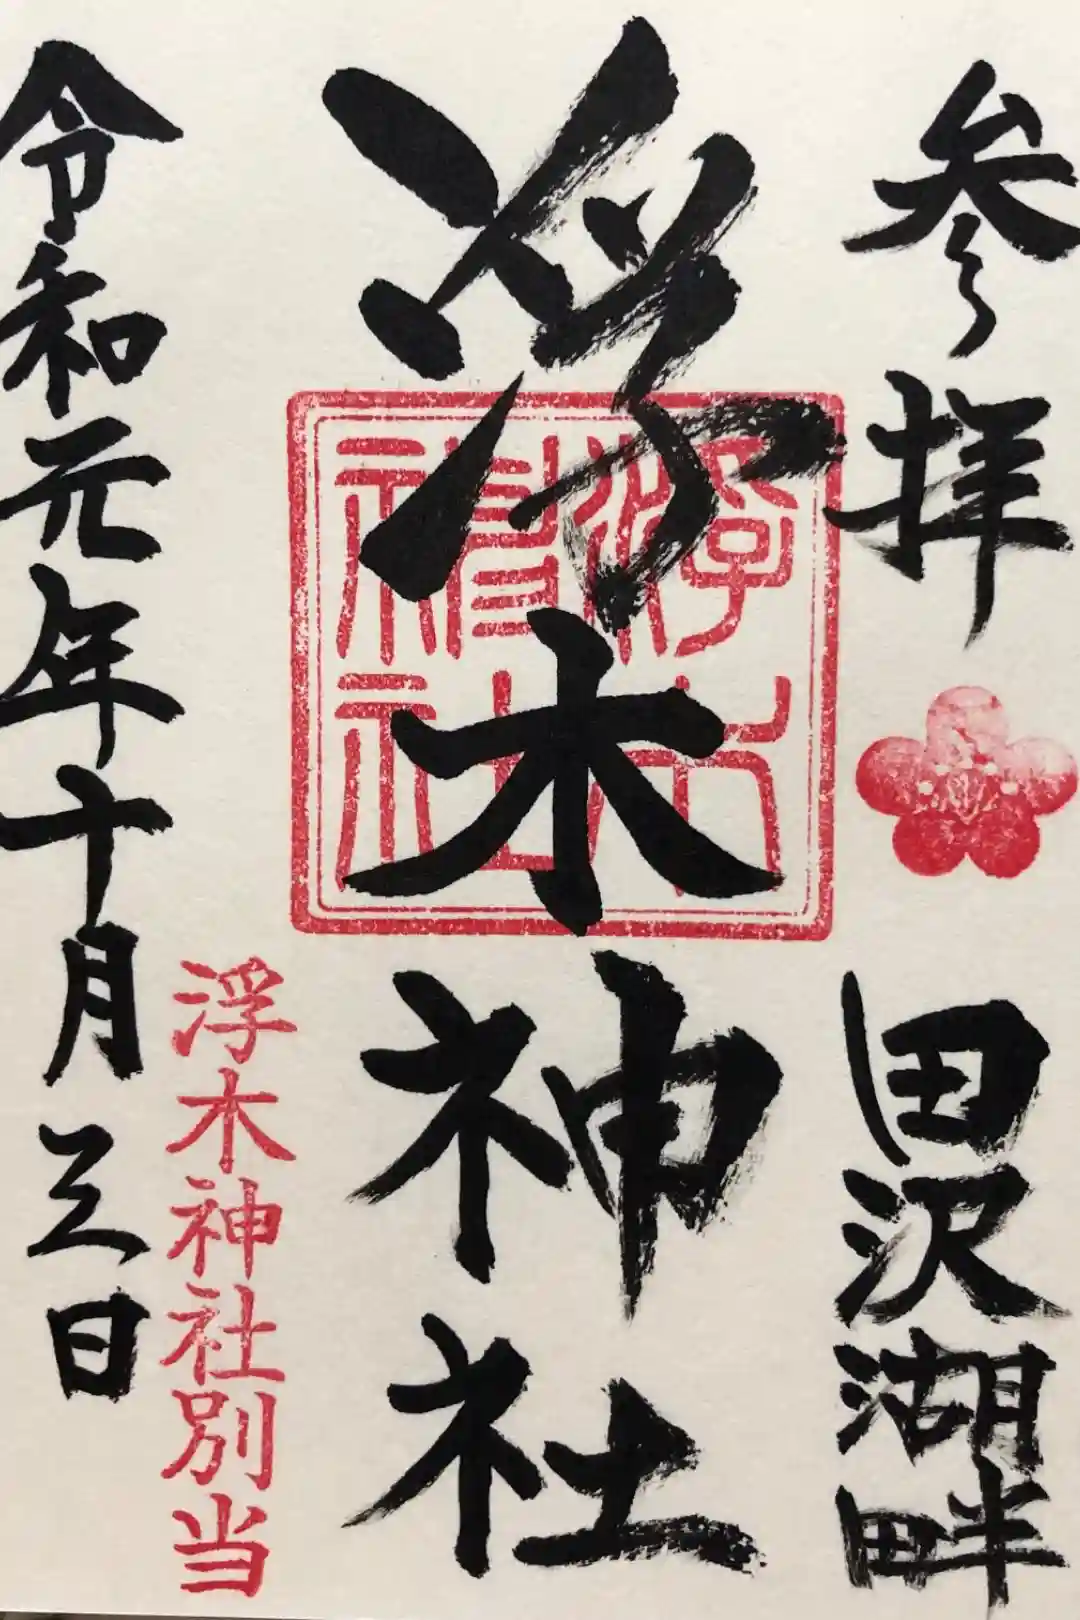 参拝
田沢湖畔
浮木神社
浮木神社
浮木神社別当
令和元年十月三日